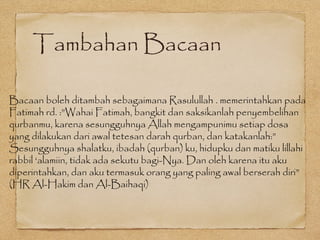 Tambahan Bacaan
Bacaan boleh ditambah sebagaimana Rasulullah . memerintahkan pada
Fatimah rd. :"Wahai Fatimah, bangkit dan saksikanlah penyembelihan
qurbanmu, karena sesungguhnya Allah mengampunimu setiap dosa
yang dilakukan dari awal tetesan darah qurban, dan katakanlah:"
Sesungguhnya shalatku, ibadah (qurban) ku, hidupku dan matiku lillahi
rabbil 'alamiin, tidak ada sekutu bagi-Nya. Dan oleh karena itu aku
diperintahkan, dan aku termasuk orang yang paling awal berserah diri"
(HR Al-Hakim dan Al-Baihaqi)